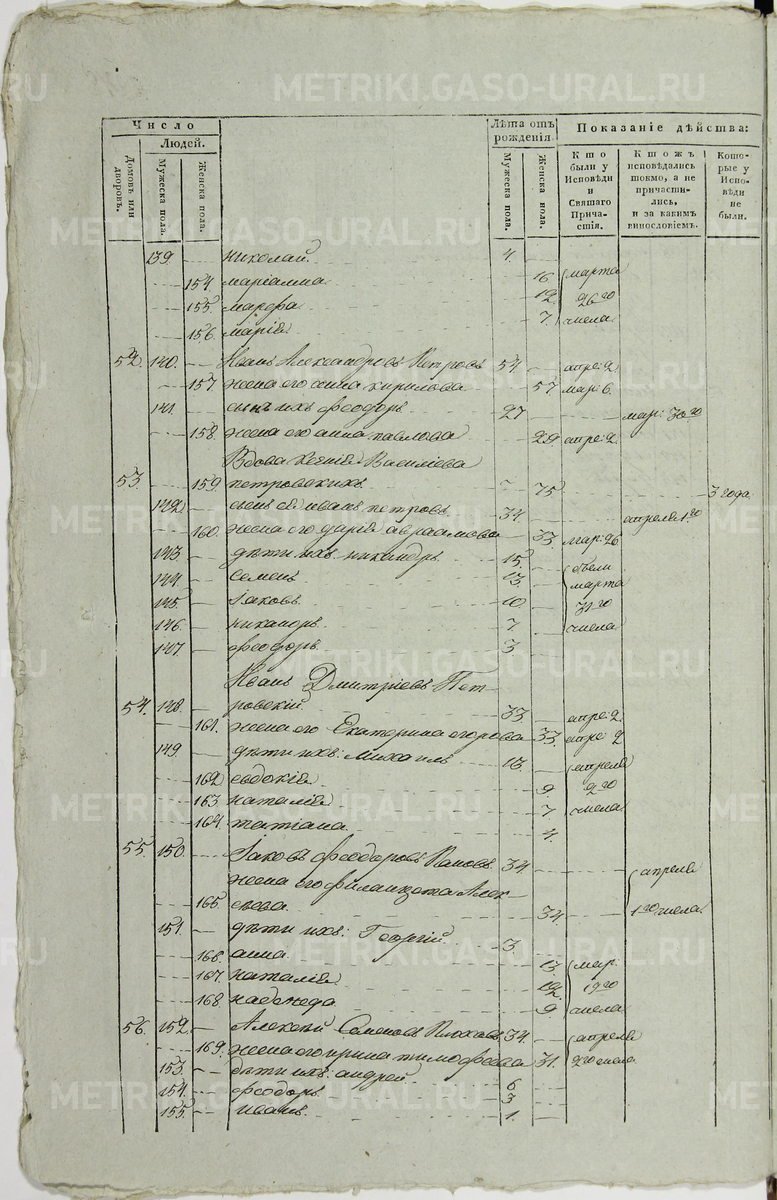 Число
Людей.
Домовъ или дворовъ.
Мужеска пола.
Женска пола.
Лѣта отъ рожденія.
Мужеска пола.
Женска пола.
Показаніе дѣйства:
Кто были у Исповѣди и Святаго Причастія.
Ктожъ исповѣдались токмо, а не причастились, и за какимъ винословіемъ.
Которые у Исповѣди не были.
139. николай. 4.
154. маріамна 16 марта
155. марфа. 12 26го
156. марія 7. числа
52. 140. Иванъ Александровъ Петровъ 54 апре: 2
157. жена его анна кирилова 57 мар: 6.
141. сынъ ихъ феодоръ 27 мар: 30го
158. жена его анна павлова 29 апре: 2
Вдова ксенія Василіева
53. 159. петровскихъ. 75 3 года.
142. сынъ ея иванъ петровъ 34 апреля 1го
160. жена его дарія авраамова 33. мар: 26
143. дѣти ихъ никандръ 15. были
144. семенъ 13 марта
145. Іаковъ. 10 31го
146. никаноръ. 7 числа
147. феодоръ. 3
Иванъ Дмитріевъ Пет-
54. 148. ровскій 33. апре: 2
161. жена его Екатерина егорова 33. апре: 2
149. дѣти ихъ: Михаилъ 13. апреля
162. евдокія 9 2го
163 наталія 7 числа
164. татіана. 4.
55. 150. Іаковъ феодоровъ 34 апреля
жена его Алек-
165. сѣева 34. 1го числа.
151. дѣти ихъ: Георгій 3
166. анна. 13 мар:
167. наталія 12 19го
168. надежда 9 числа
56. 152. Алексѣй Семеновъ 34. апреля
169. жена его ирина тимофеева 31. 2го числа
153. дѣти ихъ: андрей 6
154. феодоръ. 3
155. иванъ. 1.
METRIKI.GASO-URAL.RU